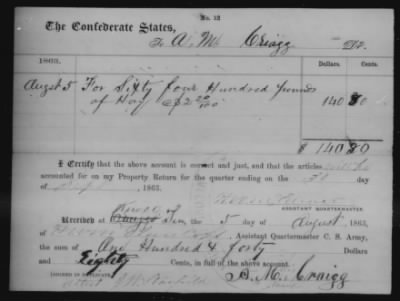 No. 12
The Confederate States,
To A. M. Craigg Dr.
1863. Dollars. Cents.
August 5 For Sixty four Hundred pounds
of Hay @ $2 20/100 140 80
$ 140 80
I Certify that the above account is correct and just, and that the articles will be
accounted for on my Property Return for the quarter ending on the 30 day
of Sept 1863.
ASSISTANT QUARTERMASTER.
Received at Ten, the 5 day of August 1863,
of Assistant Quartermaster C. S. Army,
the sum of One Hundred & forty Dollars
and Eighty Cents, in full of the above account.
(SIGNED IN DUPLICATE.) A. M. Craigg
attest J. W.